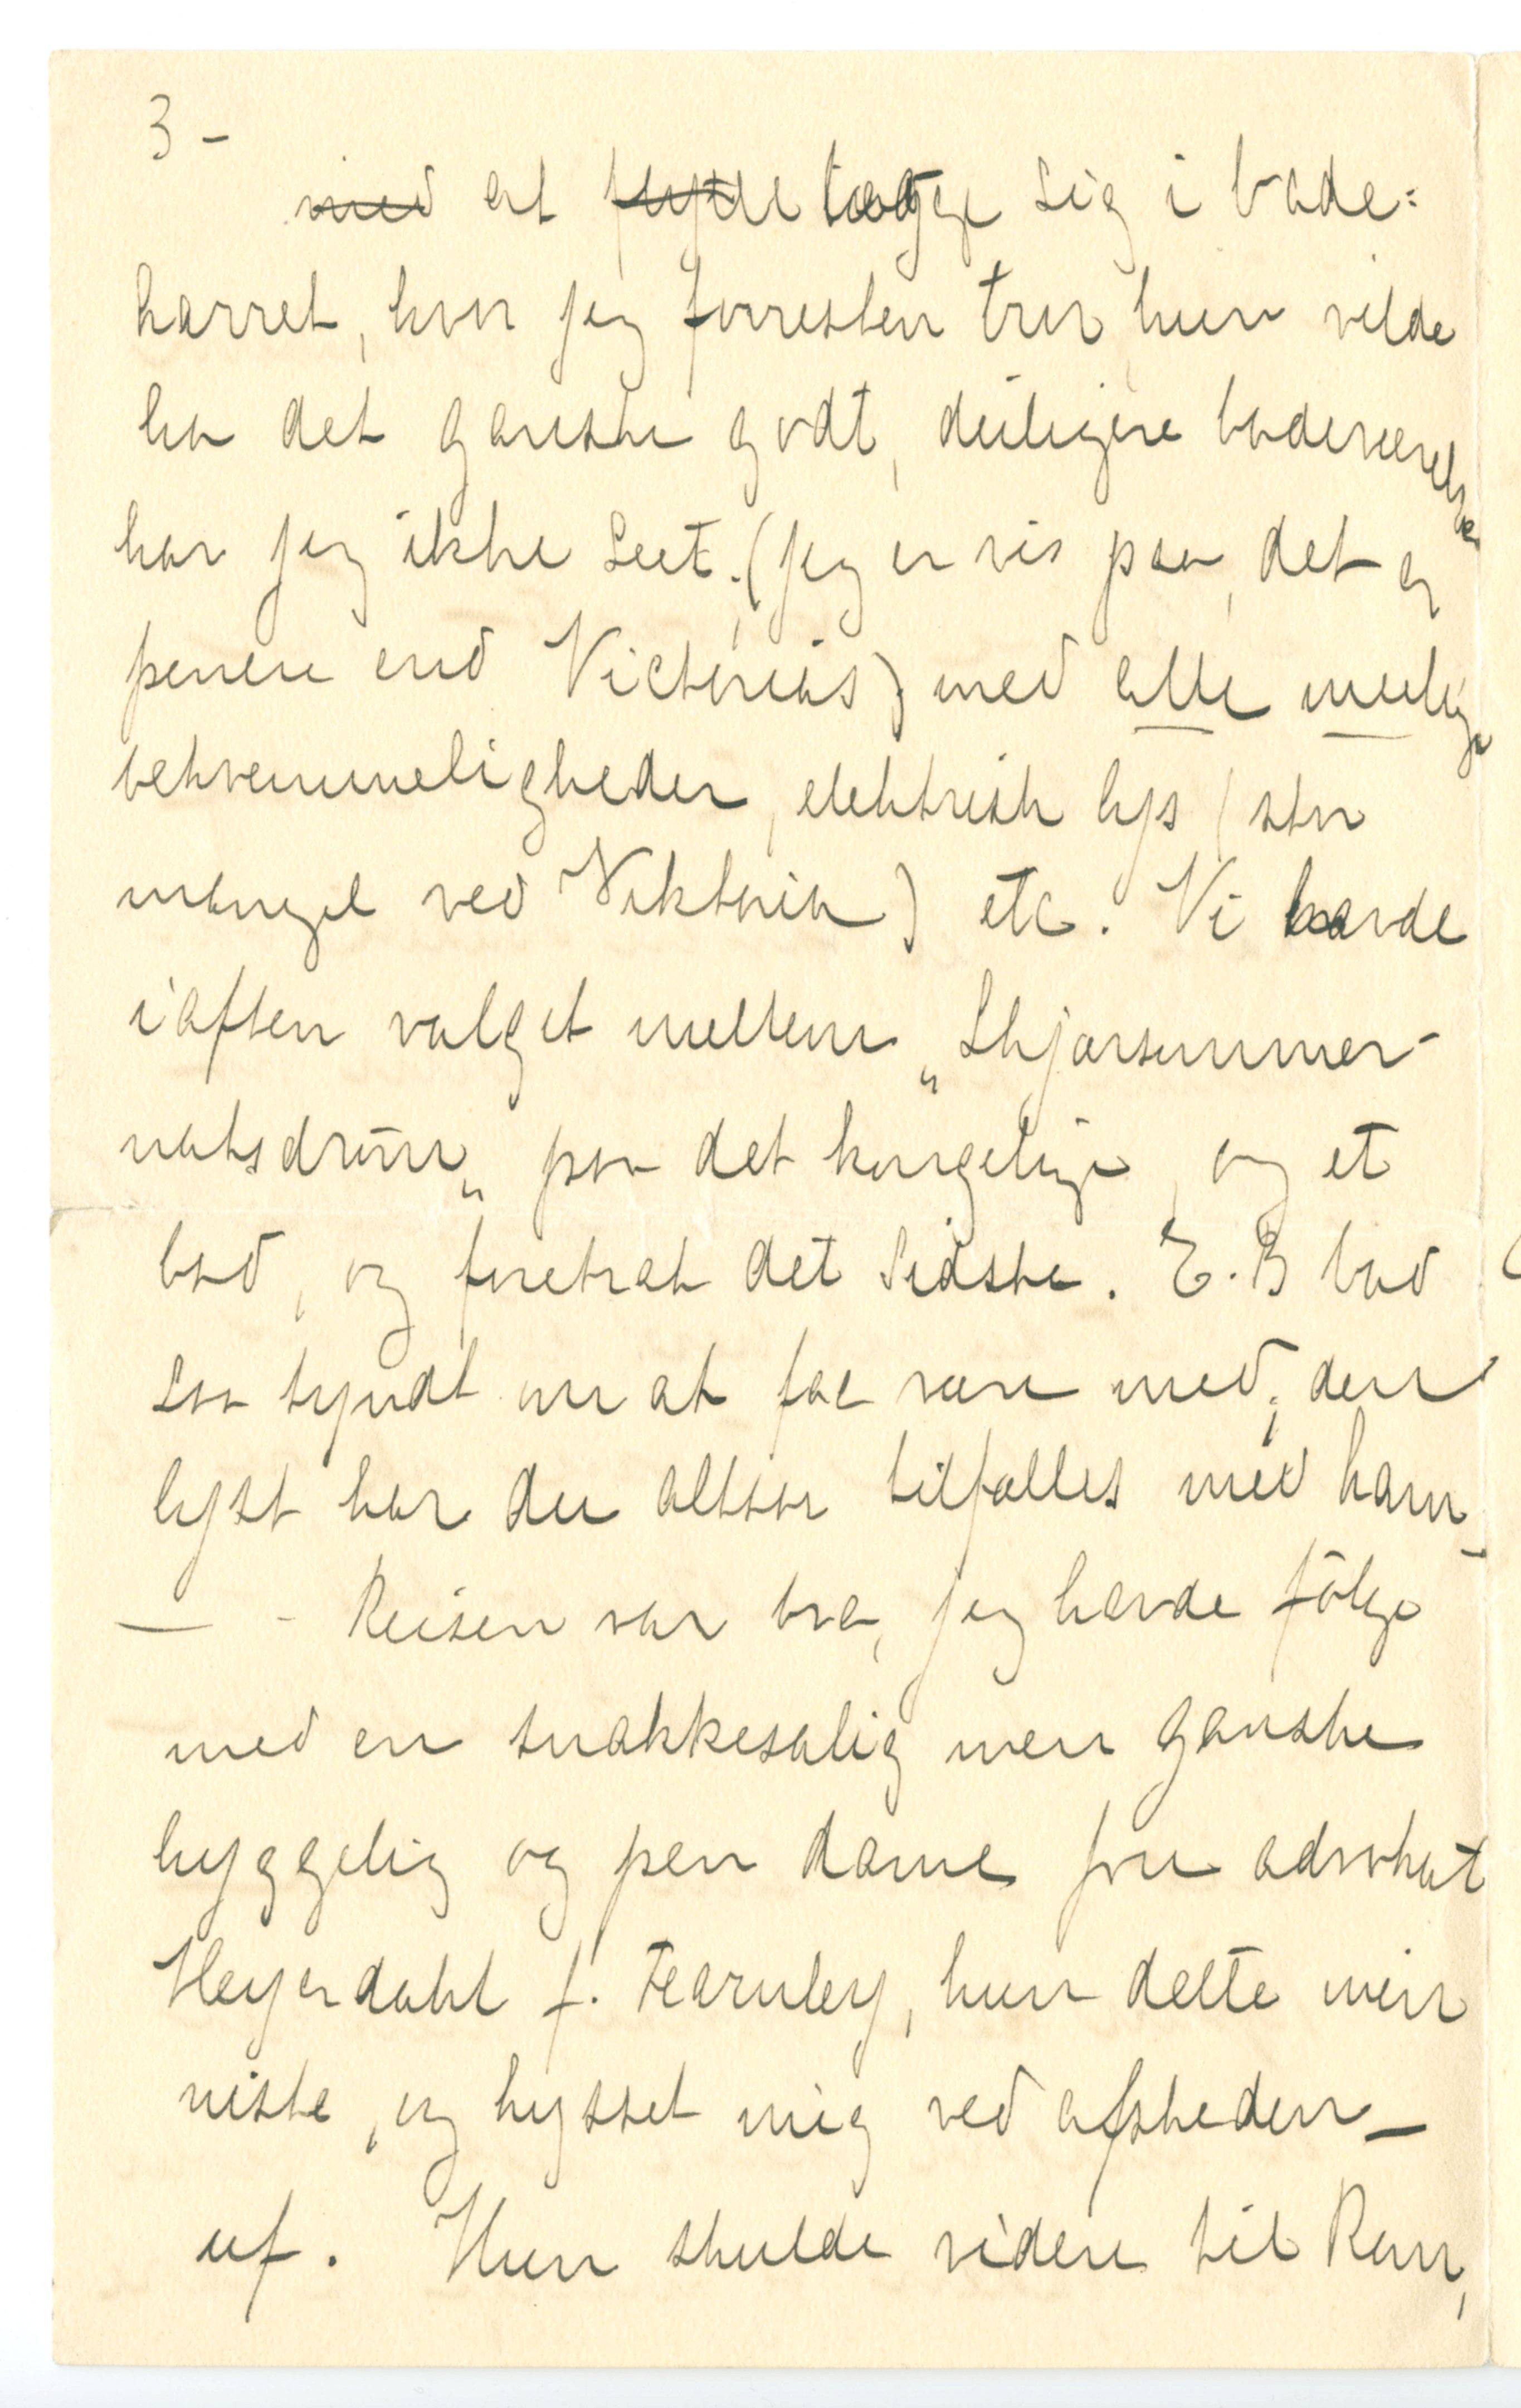 3 -
med at fylde lægge sig i bade=
karret, hvor jeg forresten tror hun vilde
ha det ganske godt, deiligere badeværelse
har jeg ikke seet. (Jeg er vis paa, det er
penere end Victorias) med alle mulige
bekvemmeligheder, elektrisk lys (stor
mangel ved Viktoria) etc. Vi havde
iaften valget mellem „Skjærsummer-
natsdrøm„ paa det kongelige, og et
bad, og foretrak det sidste. E.B bad
saa tyndt om at faa være med; den
lyst har du altsaa tilfælles med ham.
— - Reisen var bra, jeg havde følge
med en snakkesalig men ganske
hyggelig og pen dame fru advokat
Heyerdahl f. Fearnley, hun delte min
niste, og kysset mig ved afskeden —
uf. Hun skulde videre til Rom,